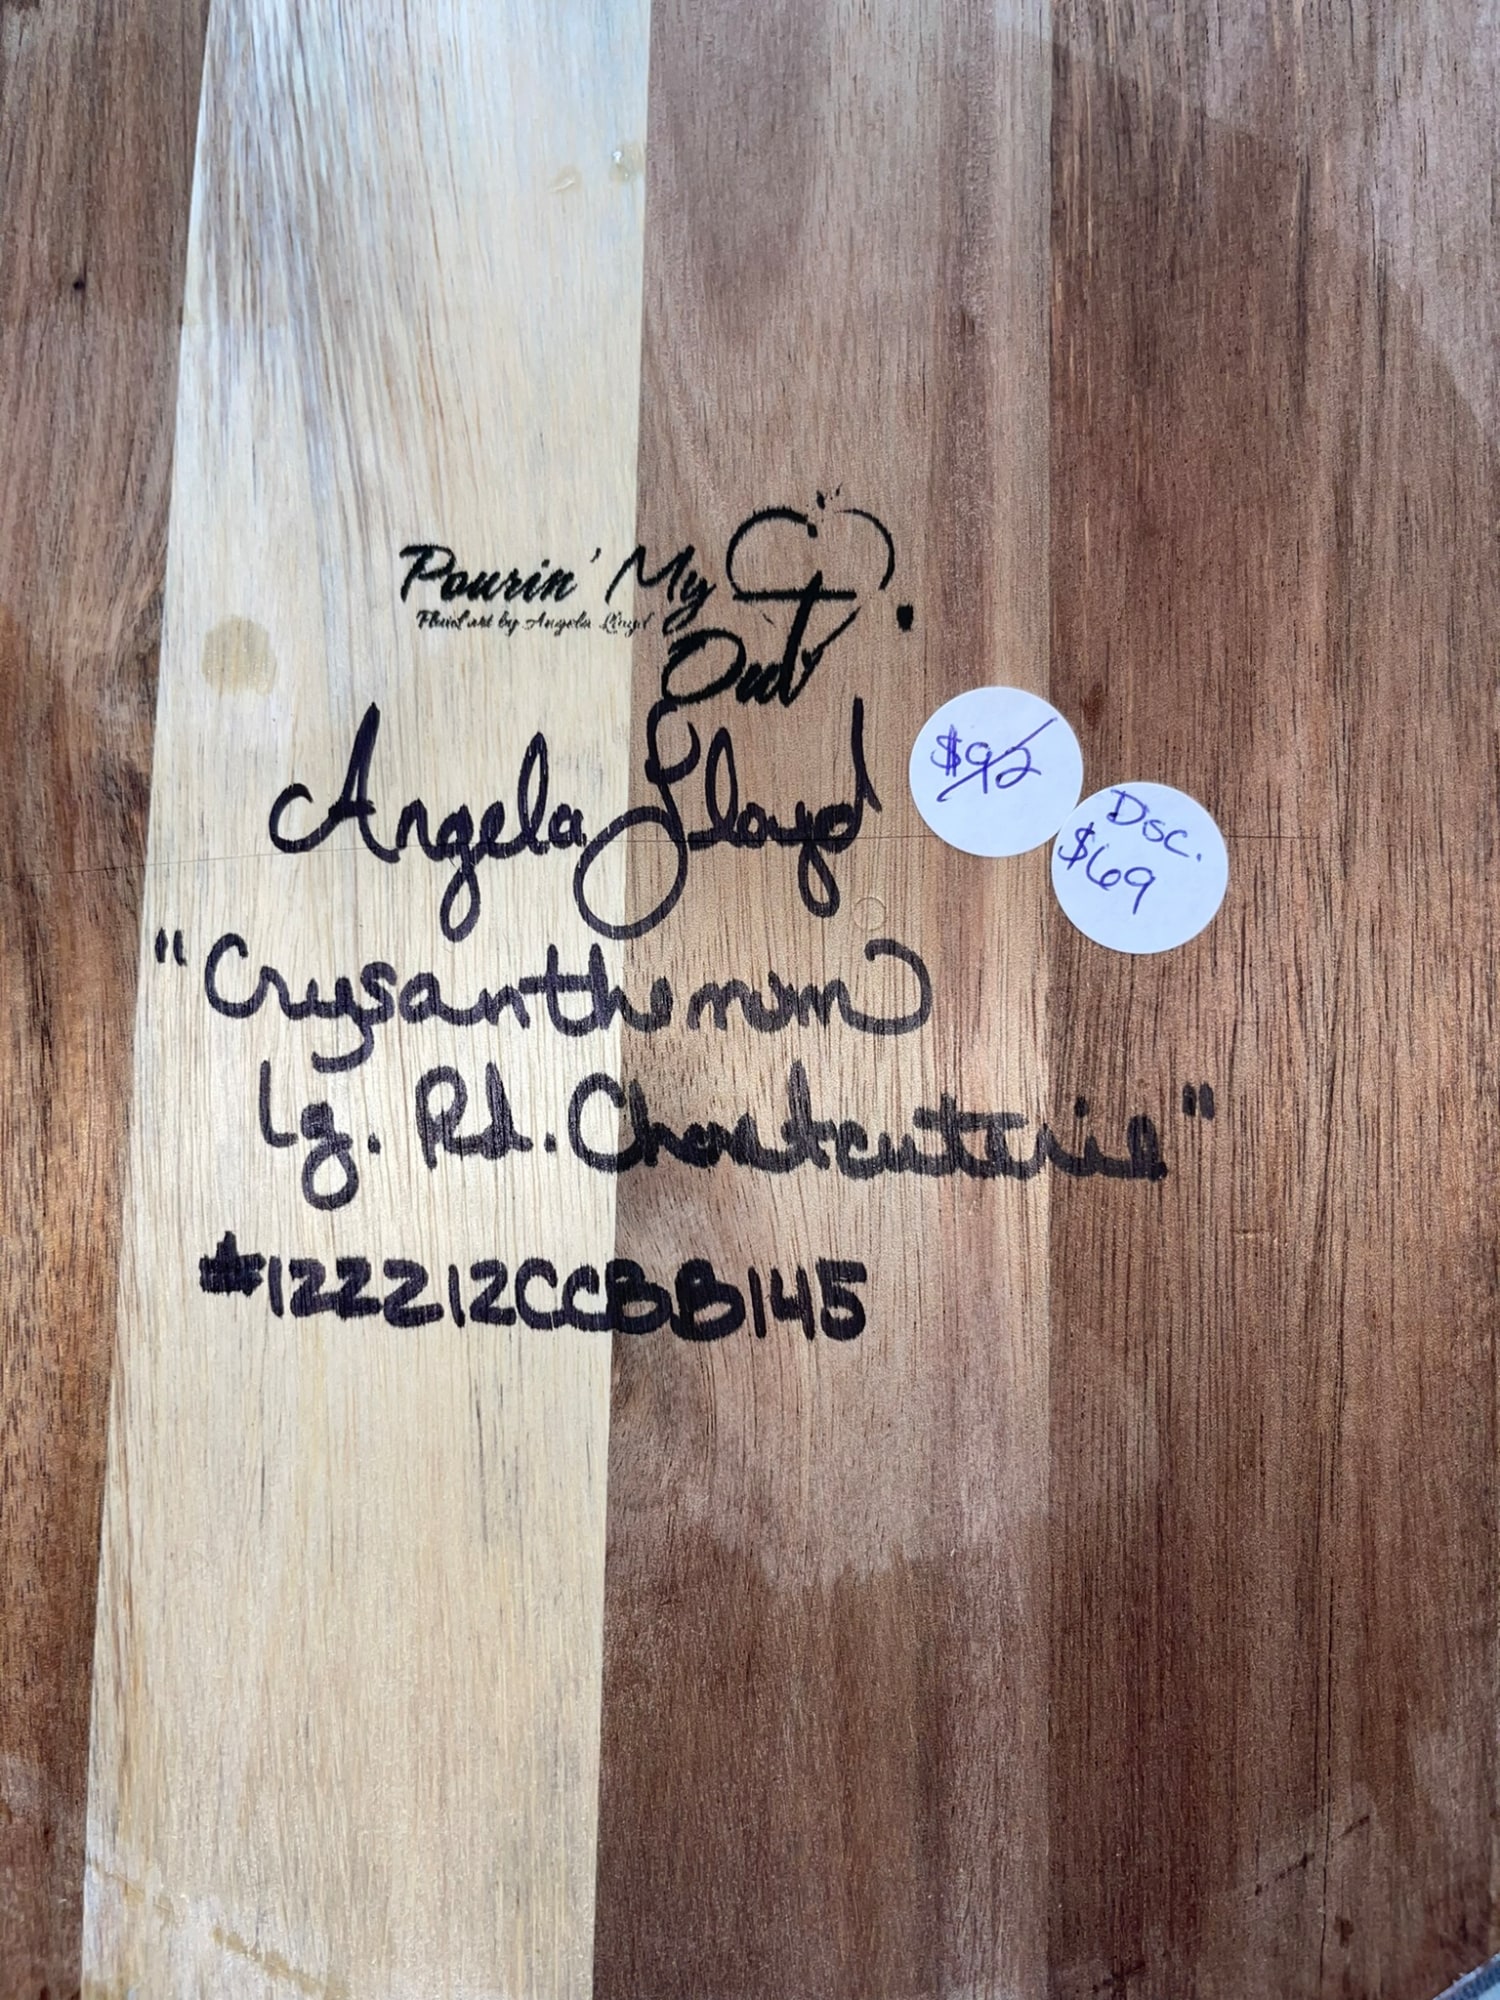 Pourin' My
Fluid art by Angela Lloyd
Out
Angela Lloyd
$92
Dsc.
$69
"Crysanthemum
Lg. Rd. Charcuterie"
#122212CCBB145